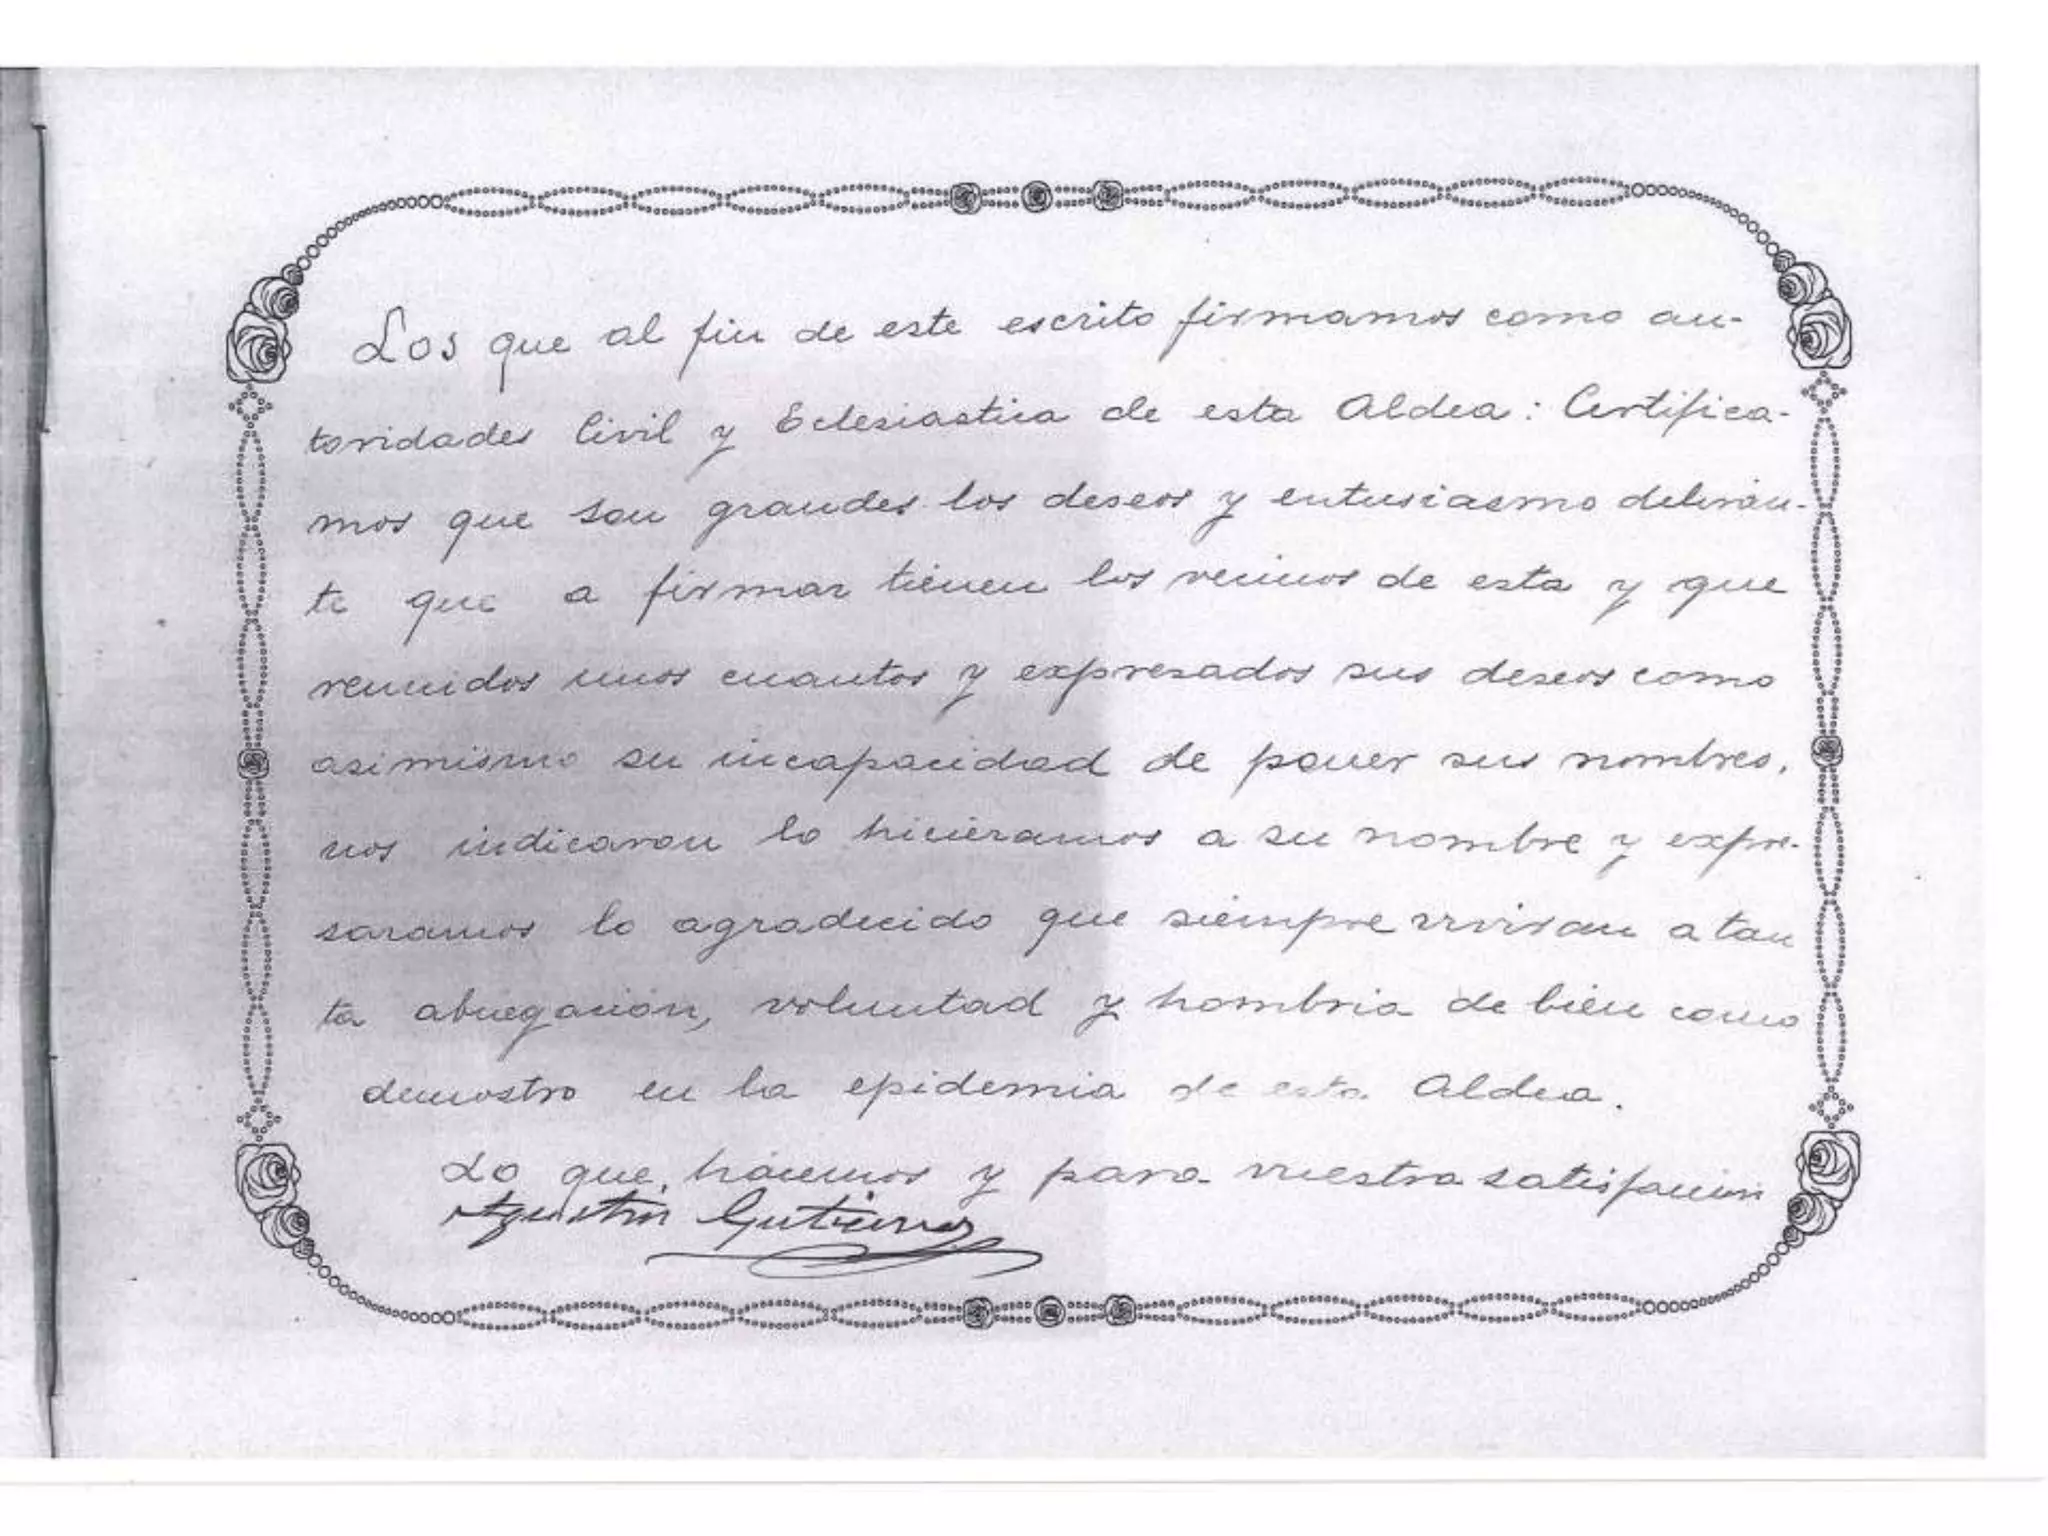 Los que al fin de este escrito firmamos como au-
toridades Civil y Eclesiastica de esta Aldea: Certifica-
mos que son grandes los deseos y entusiasmo deliran-
te que a firmar tienen los vecinos de esta y que
reunidos unos cuantos y expresados sus deseos como
asimismo su incapacidad de poner sus nombres,
nos indicaron lo hicieramos a su nombre y expre-
saramos lo agradecido que siempre viviran a tan
ta abnegación, voluntad y hombria de bien como
demostro en la epidemia de esta Aldea.
Lo que, hacemos y para nuestra satisfacción
Agustin Gutierrez